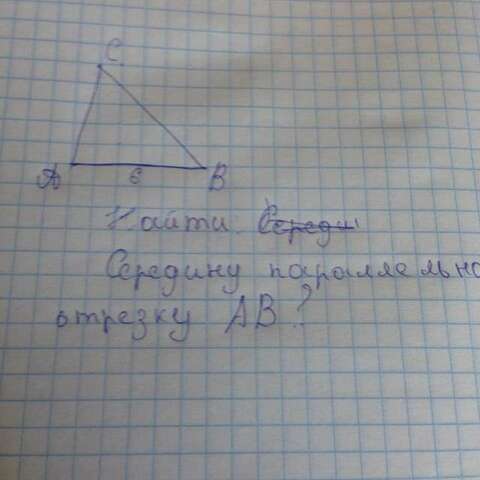 C
A 6 B
Найти
Середину параллельно
отрезку AB?